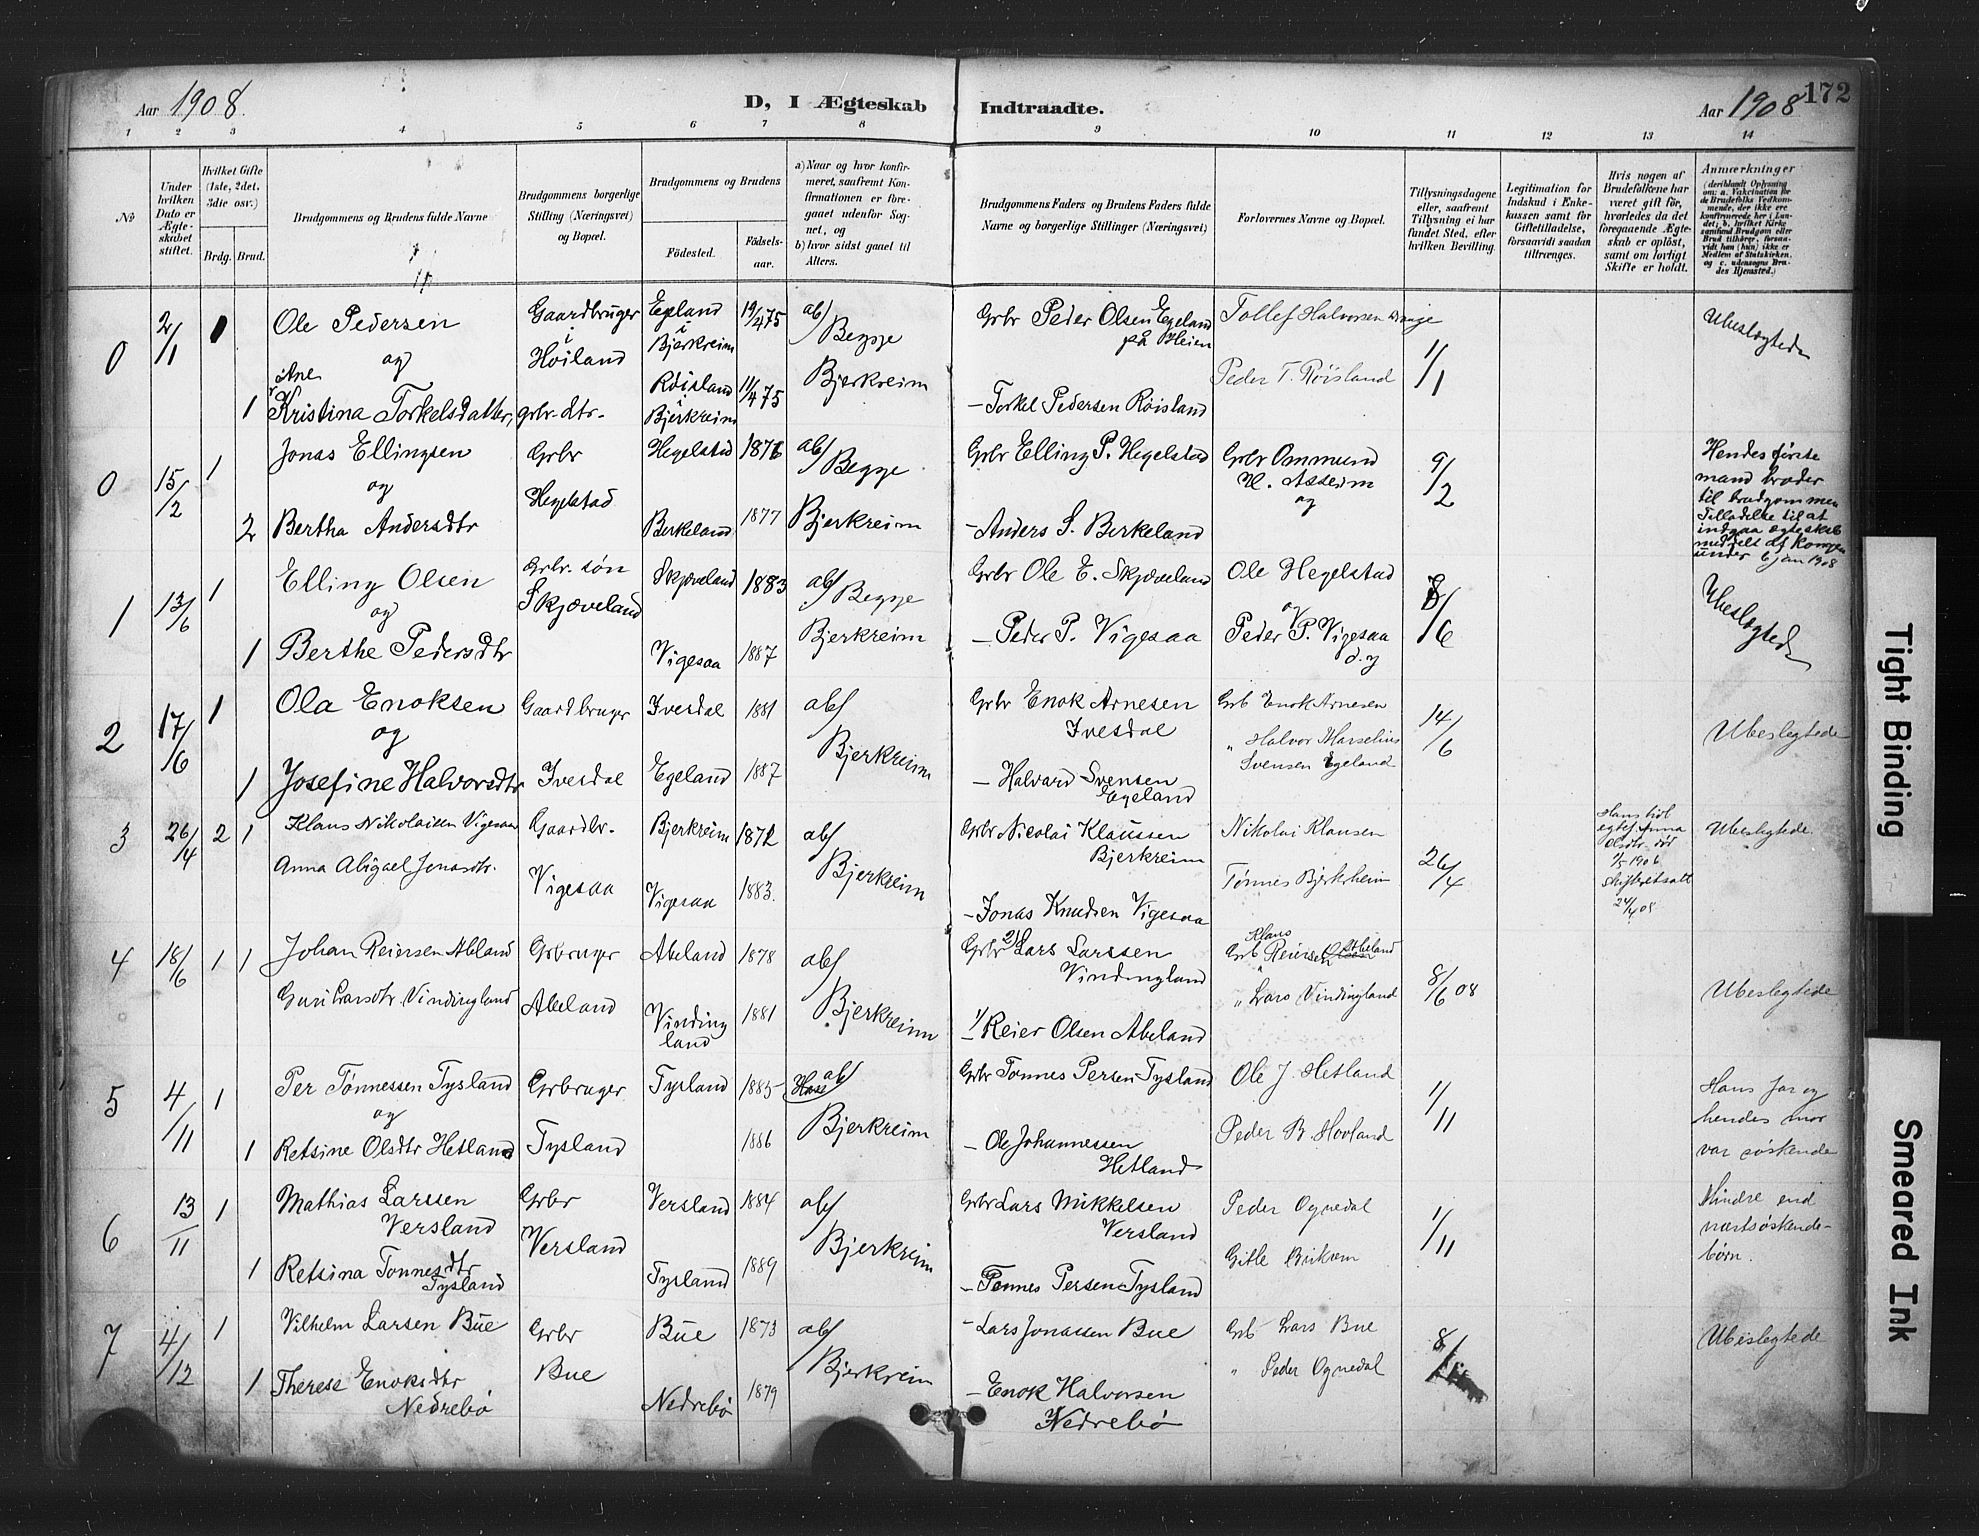 Aar 1908.
D, I Ægteskab Indtraadte.
Aar 1908
172
1 2 3 4 5 6 7 8 9 10 11 12 13 14
No
Under hvilken Dato er Ægteskabet stiftet.
Hvilket Gifte (1ste, 2det, 3die osv.)
Brdg. Brud.
Brudgommens og Brudens fulde Navne
Brudgommens borgerlige Stilling (Næringsvei) og Bopæl.
Brudgommens og Brudens
Födested.
Födsels-aar.
a) Naar og hvor konfirmeret, saafremt Konfirmationen er foregaaet udenfor Sognet, og
b) hvor sidst gaaet til Alters.
Brudgommens Faders og Brudens Faders fulde Navne og borgerlige Stillinger (Næringsvei)
Forlovernes Navne og Bopæl.
Tillysningsdagene eller, saafremt Tillysning ei har fundet Sted, efter hvilken Bevilling.
Legitimation for Indskud i Enkekassen samt for Giftetilladelse, forsaavidt saadan tiltrænges.
Hvis nogen af Brudefolkene har været gift før, hvorledes da det foregaaende Ægteskab er oplöst, samt om lovligt Skifte er holdt.
Anmærkninger
(deriblandt Oplysning om: a. Vakcination for de Brudefolks Vedkommende, der ikke ere konfirmerede her i Landet; b. hvilket Kirkesamfund Brudgom eller Brud tilhörer, forsaavidt han (hun) ikke er Medlem af Statskirken, og c. udensogns Brudes Hjemsted.)
0 2/1 1 Ole Pedersen Gaardbruger i Høiland Egeland i Bjerkreim 19/4 75 ab/ Begge Bjerkreim Grbr Peder Olsen Egeland på Heien Tollef Halvorsen 1/1 Ubeslægtede
og
1 Ane Kristina Torkelsdatter, grbr. dtr. Røisland i Bjerkreim 11/4 75 – Torkel Pedersen Røisland Peder T. Røisland
0 15/2 1 Jonas Ellingsen Grbr Hegelstad Hegelstad 1876 ab/ Begge Bjerkreim Grbr Elling P. Hegelstad Grbr Ommund og 9/2
og
2 Bertha Andersdtr Birkeland 1877 – Anders S. Birkeland
Hendes første
mand broder
til brudgommen
Tilladelse til at
indgaa ægteskab
meddelt af Kongen
under 6 jan 1908
1 13/6 1 Elling Olsen Grbr. søn Skjæveland Skjæveland 1883 ab/ Begge Bjerkreim Grbr Ole E. Skjæveland Ole Hegelstad 8/6 Ubeslægtede
og
1 Berthe Pedersdtr Vigesaa 1887 – Peder P. Vigesaa og Peder P. Vigesaa d.y
2 17/6 1 Ola Enoksen Gaardbruger Ivesdal Ivesdal 1881 ab/ Bjerkreim Grbr Enok Arnesen Ivesdal Grb Enok Arnesen 14/6 Ubeslegtede
og
1 Josefine Halvorsdtr Egeland 1887 – Halvard Svensen Egeland " Halvor Marselius Svensen Egeland
3 26/4 2 1 Klaus Nikolaisen Vigesaa Gaardbr. Vigesaa Bjerkreim 1872 ab/ Bjerkreim Grbr Nicolai Klaussen Bjerkreim Nikolai Klausen 26/4 Ubeslegtede
Anna Abigael Jonasdtr. Vigesaa 1883. – Jonas Knudsen Vigesaa Tønnes Bjerkrheim
Hans tidl
egtef. Anna
Olsdtr. død
1/5 1906
skifteretsatt
24/4 08
4 18/6 1 1 Johan Reiersen Abeland Grbruger Abeland Abeland 1878 ab/ Bjerkreim Grbr 2) Lars Larssen Vindingland Grb Klaus Reiersen Abeland 8/6 08 Ubeslegtede
Guri Larsdtr. Vindingland Vindingland 1881 1) – Reier Olsen Abeland " Lars Vindingland
5 4/11 1 Per Tønnessen Tysland Grbruger Tysland Tysland 1885 ab/ Bjerkreim Grbr Tønnes Persen Tysland Ole J. Hetland 1/11
og
1 Retsine Olsdtr Hetland 1886 – Ole Johannessen Hetland Peder B. Hovland
Hans far og
hendes mor
var søskende
6 13/11 1 Mathias Larssen Versland Grbr Versland Versland 1884 ab/ Bjerkreim Grbr Lars Mikkelsen Versland Peder Ognedal 1/11
1 Retsina Tønnesdtr Tysland Tysland 1889 – Tønnes Persen Tysland Gitle
Mindre end
næstsøskende-
børn.
7 4/12 1 Vilhelm Larsen Bue Grbr Bue Bue 1873 ab/ Bjerkreim – Lars Jonassen Bue Grb Lars Bue 8/ Ubeslegtede
1 Therese Enoksdtr Nedrebø Nedrebø 1879 – Enok Halvorsen Nedrebø " Peder Ognedal
Tight Binding
Smeared Ink